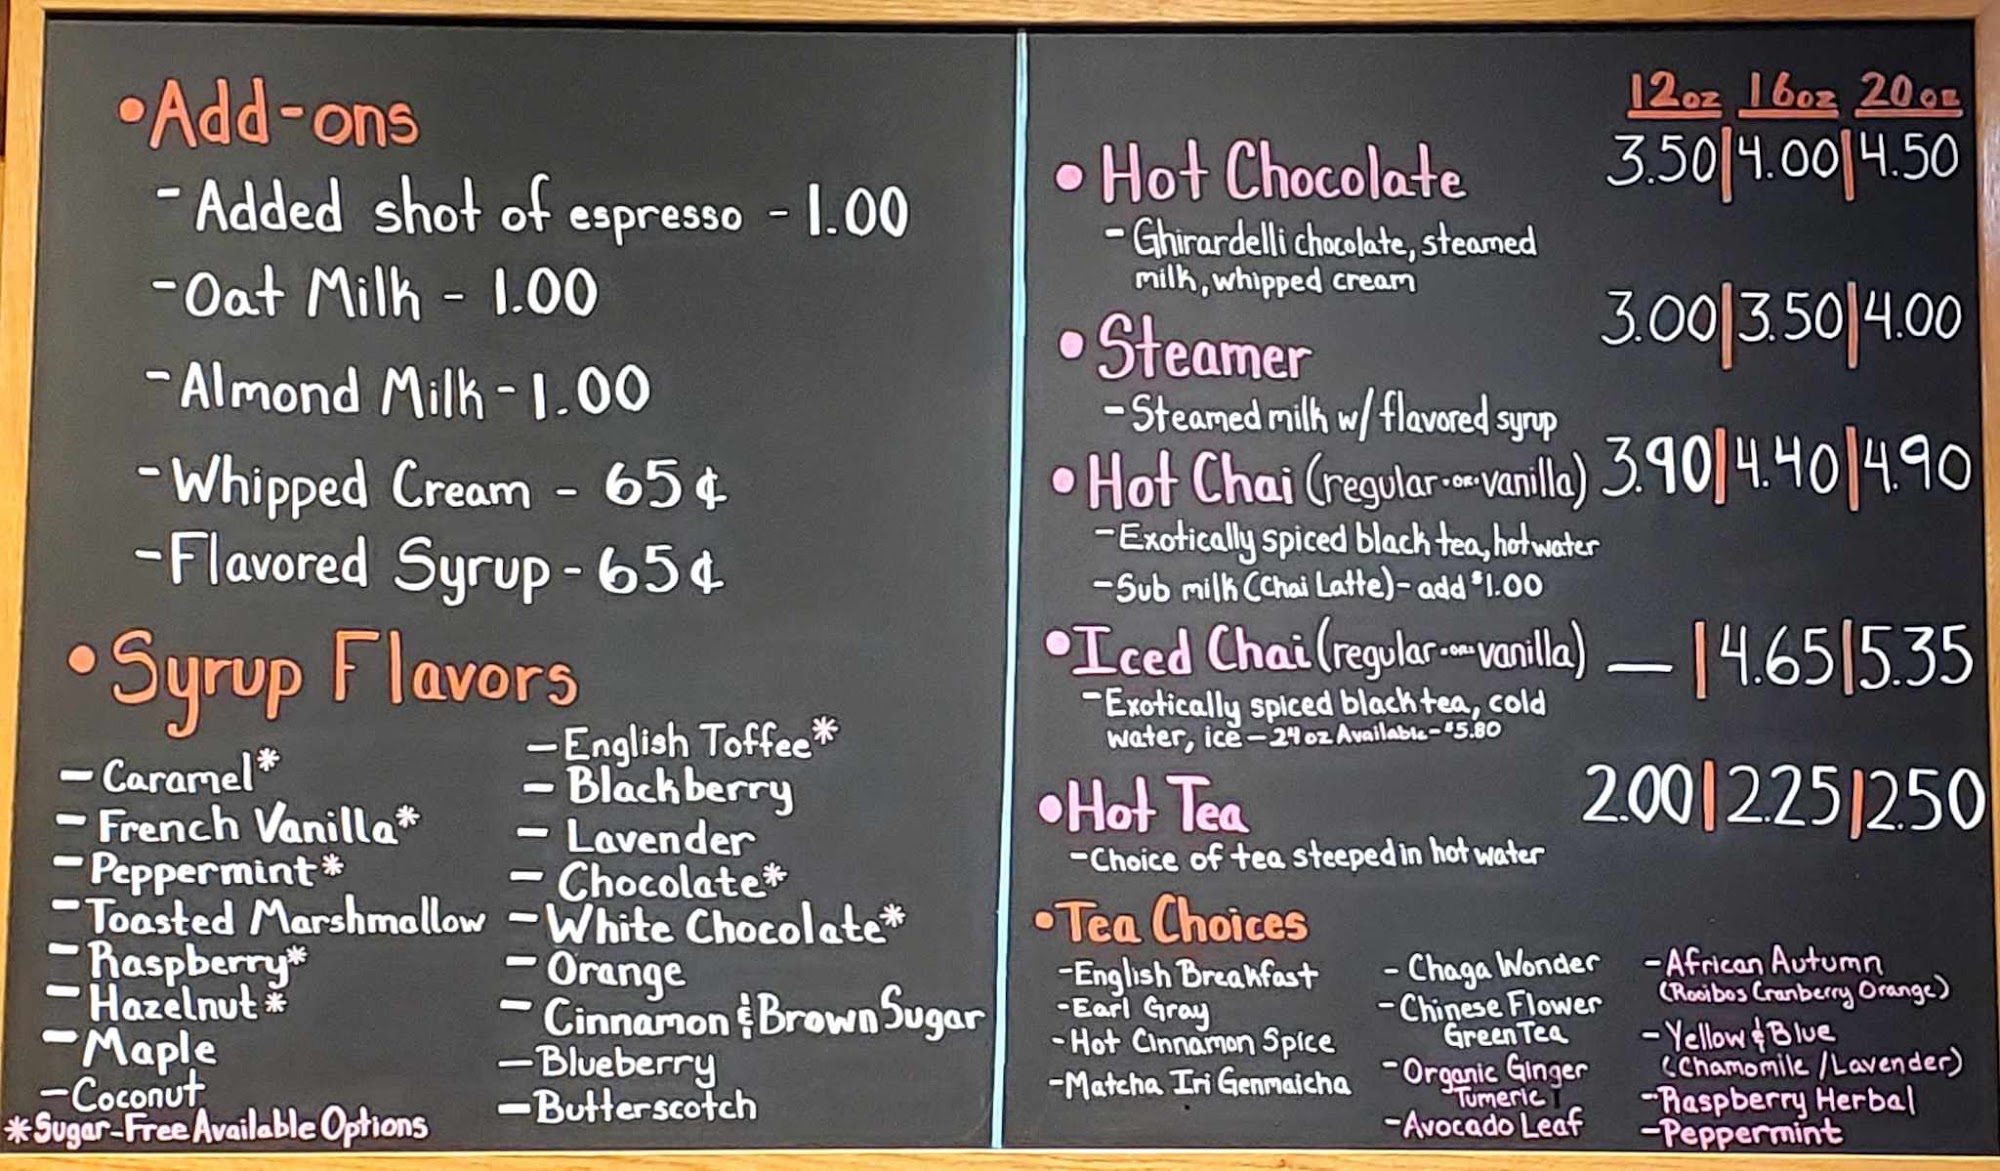 •Add-ons
-Added shot of espresso - 1.00
-Oat Milk - 1.00
-Almond Milk - 1.00
-Whipped Cream - 65¢
-Flavored Syrup - 65¢
•Syrup Flavors
- Caramel*
- French Vanilla*
- Peppermint*
- Toasted Marshmallow
- Raspberry*
- Hazelnut*
- Maple
- Coconut
*Sugar-Free Available Options
- English Toffee*
- Blackberry
- Lavender
- Chocolate*
- White Chocolate*
- Orange
- Cinnamon & Brown Sugar
- Blueberry
- Butterscotch
12oz 16oz 20oz
• Hot Chocolate 3.50|4.00|4.50
- Ghirardelli chocolate, steamed
milk, whipped cream
• Steamer 3.00|3.50|4.00
- Steamed milk w/ flavored syrup
• Hot Chai (regular •or• vanilla) 3.90|4.40|4.90
- Exotically spiced black tea, hot water
- Sub milk (Chai Latte) - add $1.00
• Iced Chai (regular •or• vanilla) — |4.65|5.35
- Exotically spiced black tea, cold
water, ice - 24 oz Available - $5.80
• Hot Tea 2.00|2.25|2.50
- Choice of tea steeped in hot water
• Tea Choices
- English Breakfast
- Earl Gray
- Hot Cinnamon Spice
- Matcha Iri Genmaicha
- Chaga Wonder
- Chinese Flower
Green Tea
- Organic Ginger
Tumeric
- Avocado Leaf
- African Autumn
(Rooibos Cranberry Orange)
- Yellow & Blue
(Chamomile / Lavender)
- Raspberry Herbal
- Peppermint